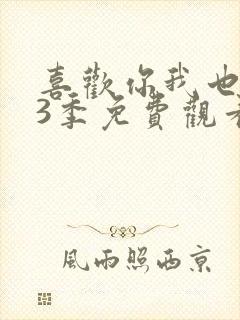 喜歡你我也
3季免費觀看
風雨照西京